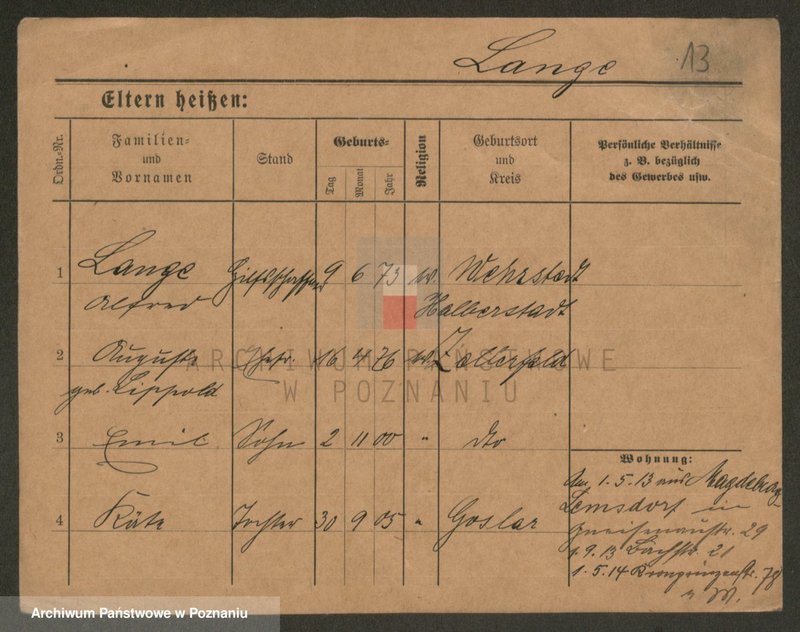 Lange 13
Eltern heißen:
Ordn.-Nr. Familien- und Vornamen Stand Geburts- Tag Monat Jahr Religion Geburtsort und Kreis Persönliche Verhältnisse z. B. bezüglich des Gewerbes usw.
1 Lange 9 6 73 Wehrstedt
Alfred Halberstadt
2 Auguste Ehefr. 16 4 76 Zellerfeld
geb. Lippold
ARCHIWUM PAŃSTWOWE
W POZNANIU
3 Emil Sohn 2 11 00 " dto
4 Käte Tochter 30 9 05 " Goslar
Wohnung:
Am 1.5.13 aus Magdebg-
Lemsdorf in
Gneisenaustr. 29
1.9.13 Bachstr. 21
1.5.14 Kronprinzenstr. 78
Archiwum Państwowe w Poznaniu